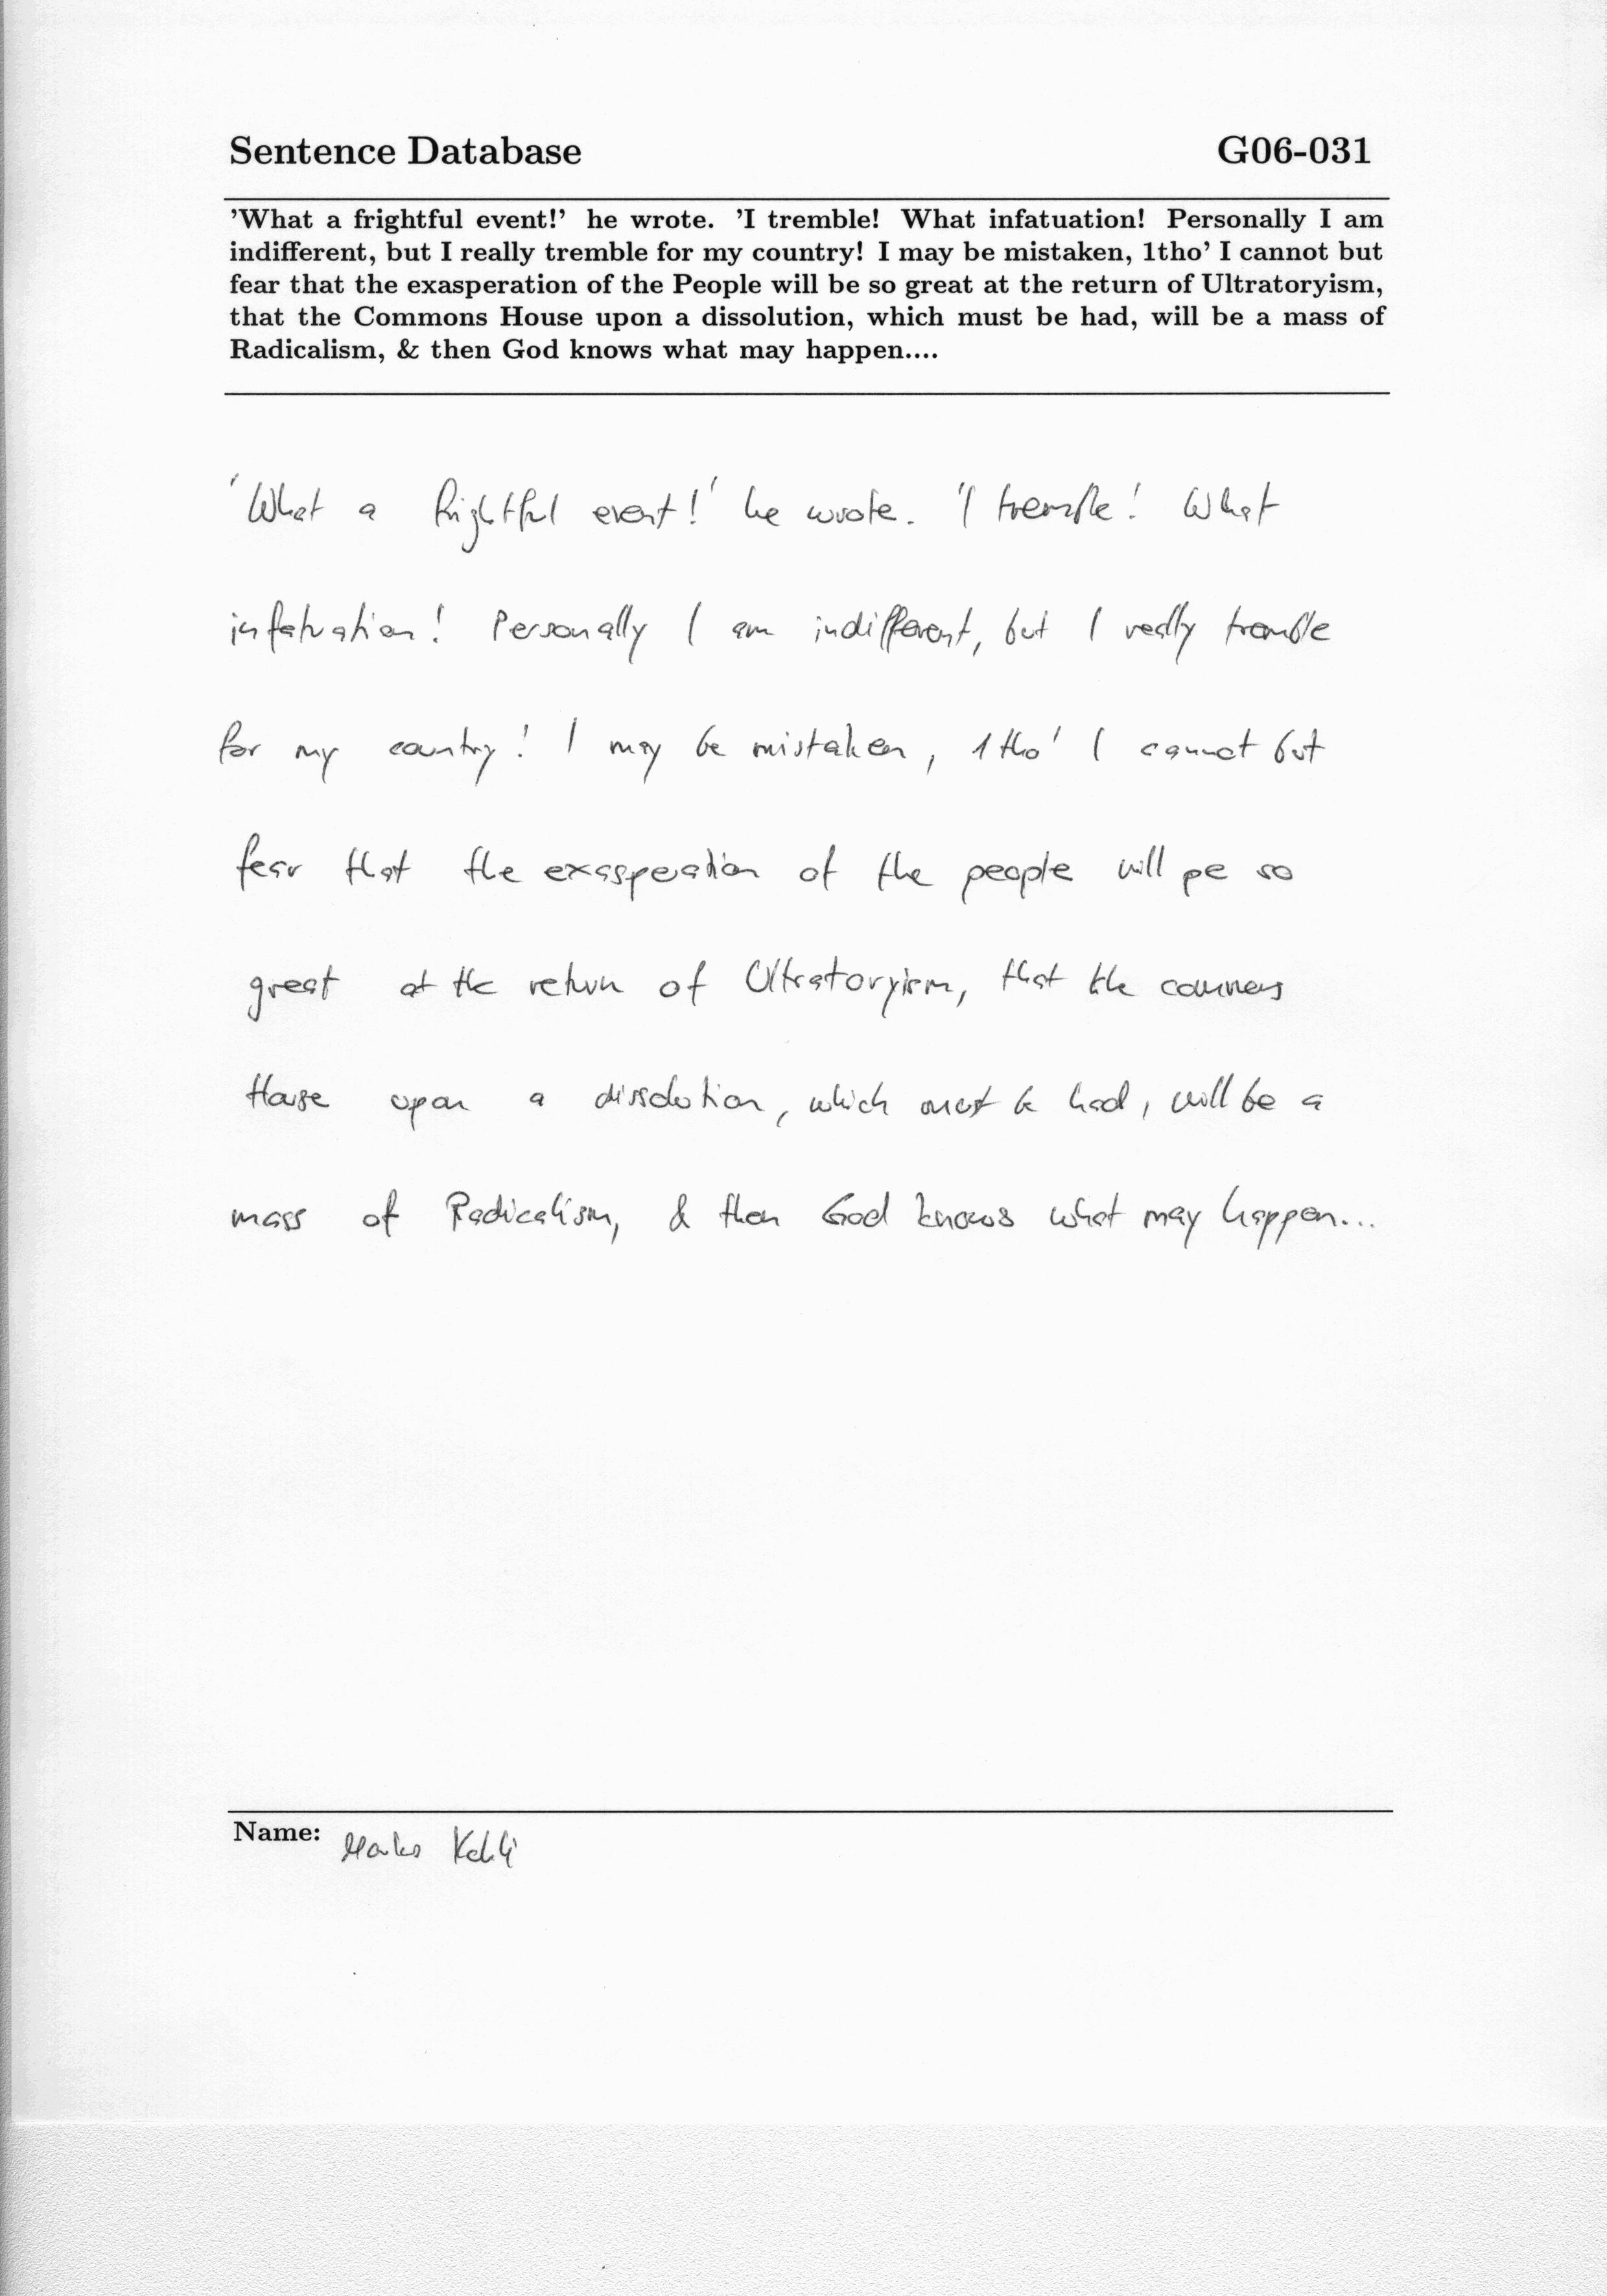 Sentence Database G06-031
’What a frightful event!’ he wrote. ’I tremble! What infatuation! Personally I am
indifferent, but I really tremble for my country! I may be mistaken, 1tho’ I cannot but
fear that the exasperation of the People will be so great at the return of Ultratoryism,
that the Commons House upon a dissolution, which must be had, will be a mass of
Radicalism, & then God knows what may happen....
'What a frightful event!' he wrote. 'I tremble! What
infatuation! Personally I am indifferent, but I really tremble
for my country! I may be mistaken, 1tho' I cannot but
fear that the exasperation of the people will pe so
great at the return of Ultratoryism, that the commons
House upon a dissolution, which must be had, will be a
mass of Radicalism, & then God knows what may happen...
Name: